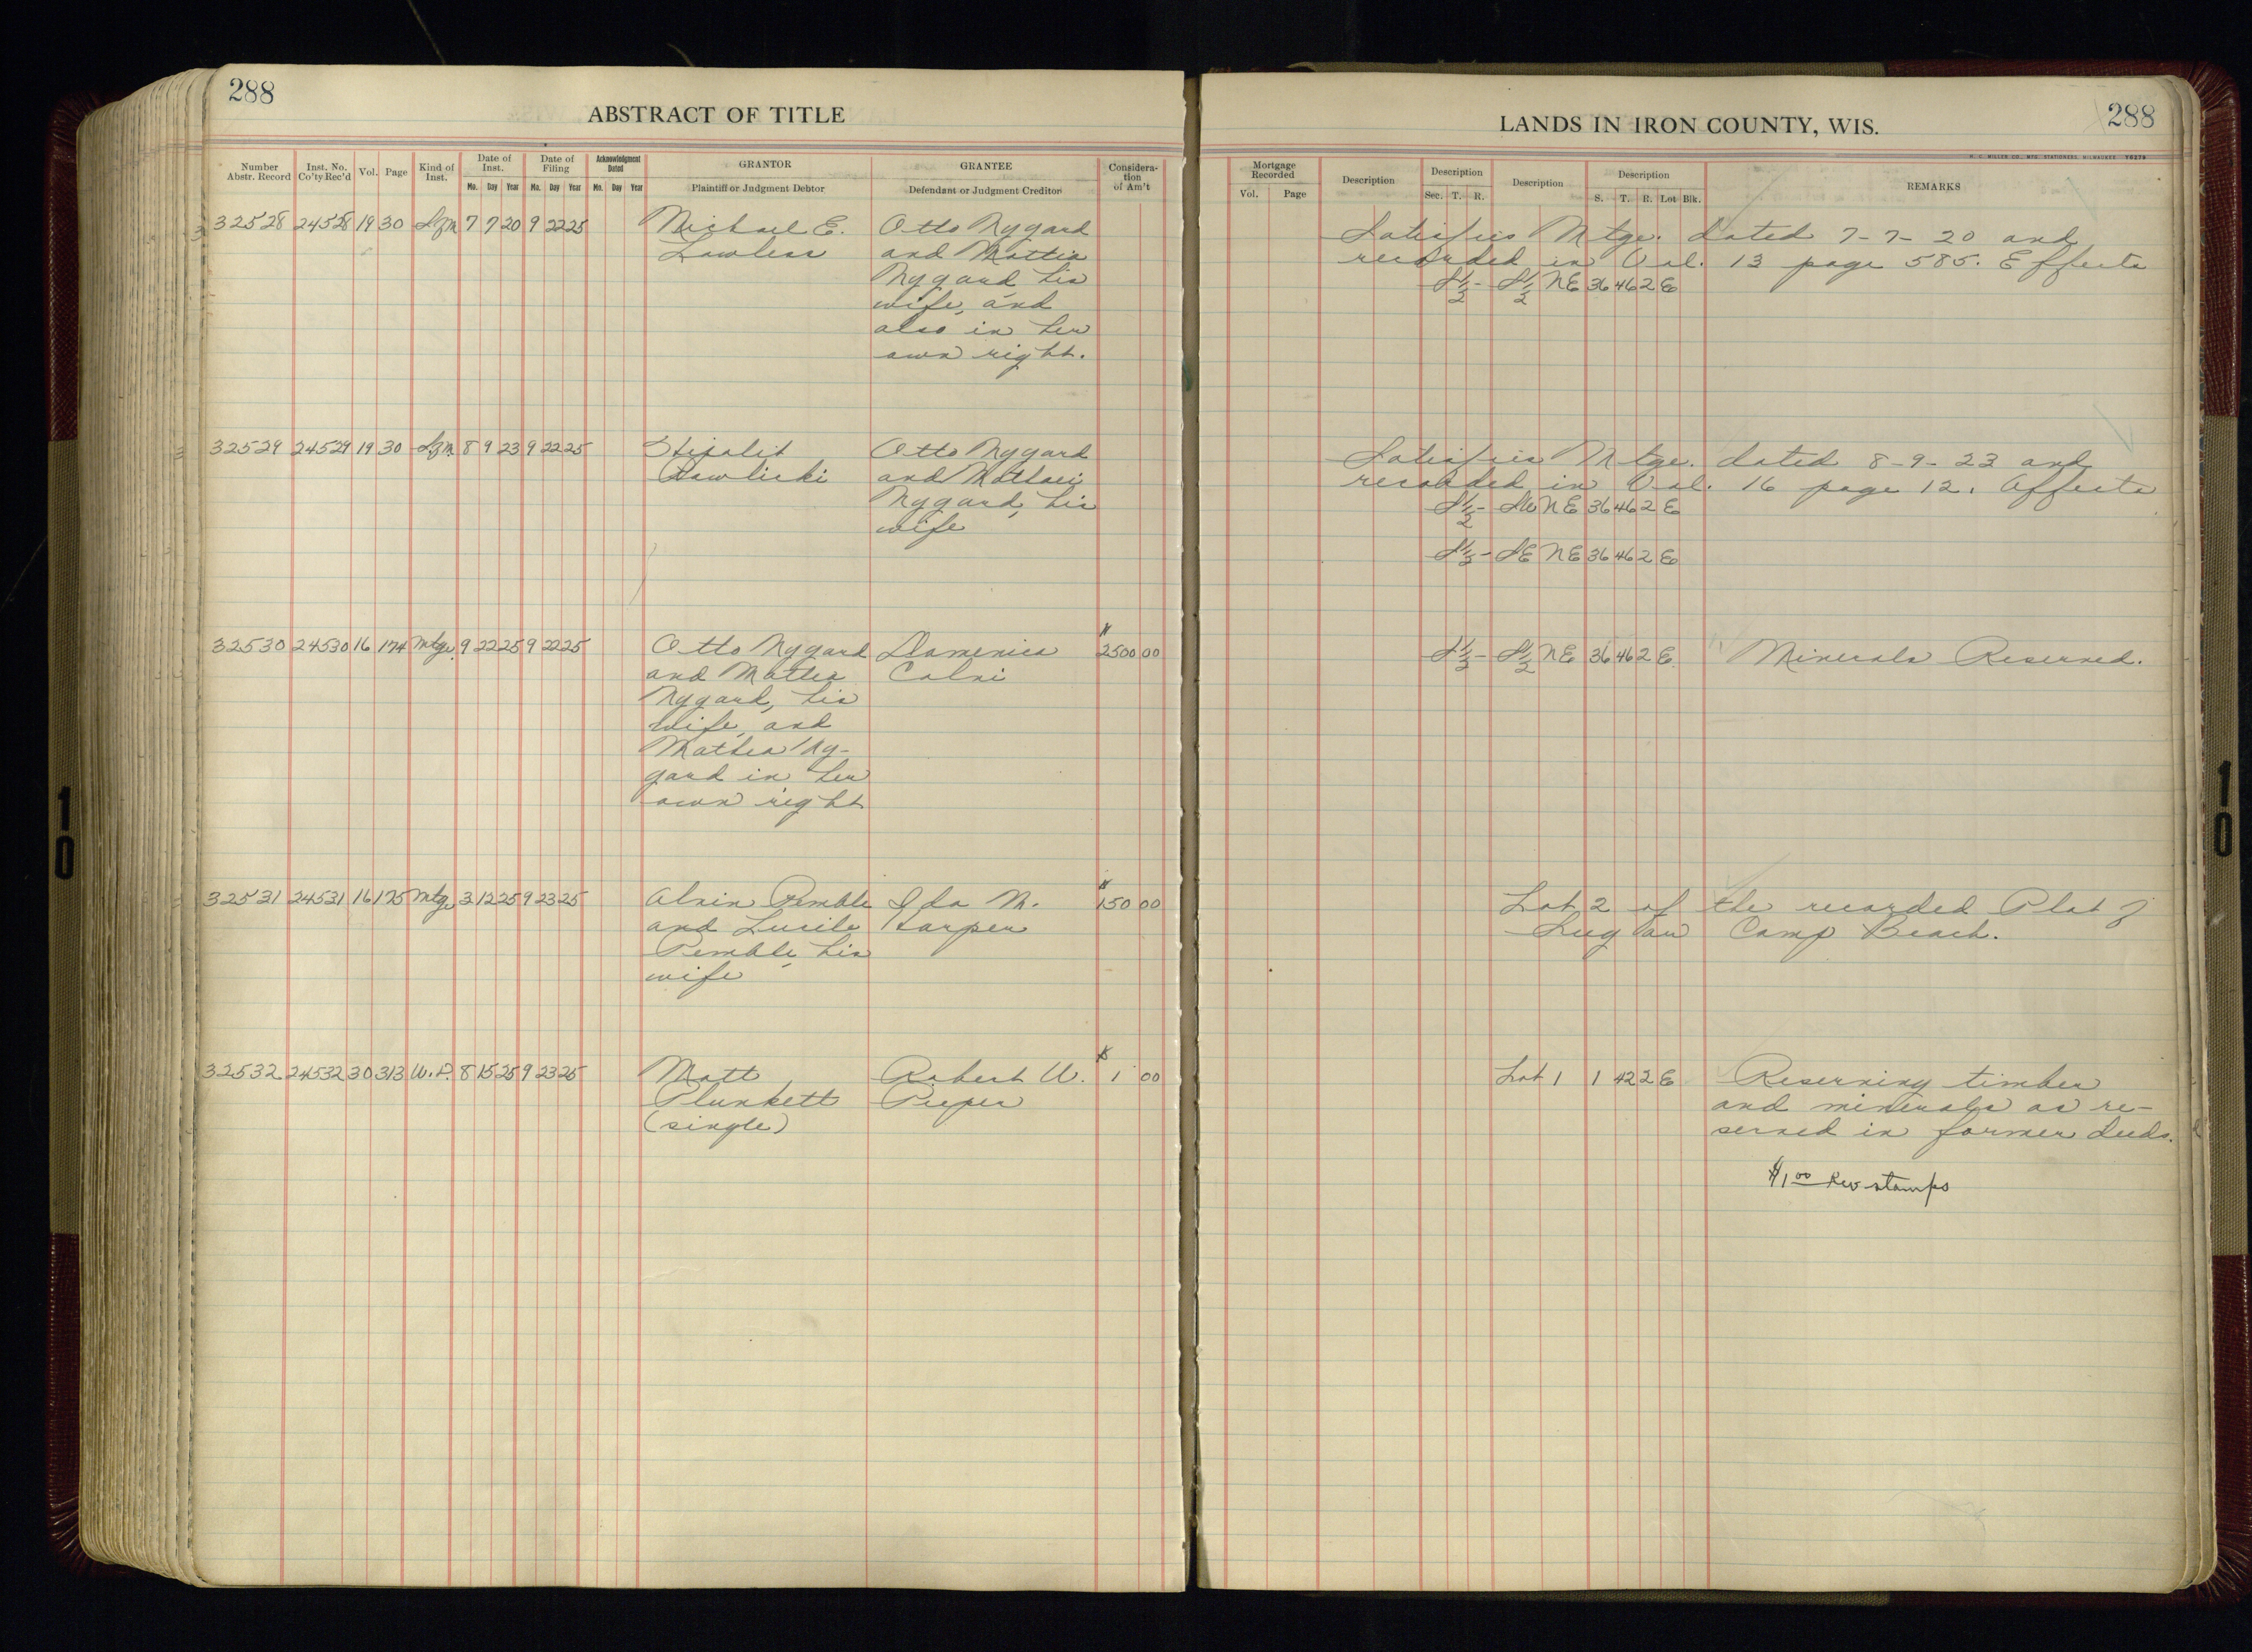 288
ABSTRACT OF TITLE
Number Abstr. Record
Inst. No. Co'ty Rec'd
Vol.
Page
Kind of Inst.
Date of Inst.
Mo. Day Year
Date of Filing
Mo. Day Year
Acknowledgment Dated
Mo. Day Year
GRANTOR
Plaintiff or Judgment Debtor
GRANTEE
Defendant or Judgment Creditor
Considera-
tion
of Am't
32528 24528 19 30 7 7 20 9 22 25 Michael E. Otto Nygard
Lawless and Mattia
Nygard his
wife, and
also in her
own right.
32529 24529 19 30 8 9 23 9 22 25 Otto Nygard
and
Nygard, his
wife
32530 24530 16 174 Mtge. 9 22 25 9 22 25 Otto Nygard $2500 00
and Mattea
Nygard, his
wife, and
Mathea Ny-
gard in her
own right
32531 24531 16 175 Mtge 3 12 25 9 23 25 Alvin Pemble Ida M. $150 00
and Lucile Harper
Pemble, his
wife
32532 24532 30 313 W.D. 8 15 25 9 23 25 Matt Robert W. $1 00
Plunkett Pieper
(single)
LANDS IN IRON COUNTY, WIS.
288
H. C. MILLER CO., MFG. STATIONERS, MILWAUKEE Y0279
Mortgage Recorded
Vol. Page
Description
Description
Sec. T. R.
Description
Description
S. T. R. Lot Blk.
REMARKS
Satisfies Mtge. dated 7-7-20 and
recorded in Vol. 13 page 585. Effects
S½- S½ NE 36 46 2 E
Satisfies Mtge. dated 8-9-23 and
recorded in Vol. 16 page 12. Affects
S½- SW NE 36 46 2 E
S½- SE NE 36 46 2 E
S½- S½ NE 36 46 2 E Minerals Reserved.
Lot 2 of the recorded Plat of
Camp Beach.
Lot 1 1 42 2 E Reserving timber
and minerals as re-
served in former deeds.
$1.00 Rev stamps
10
10